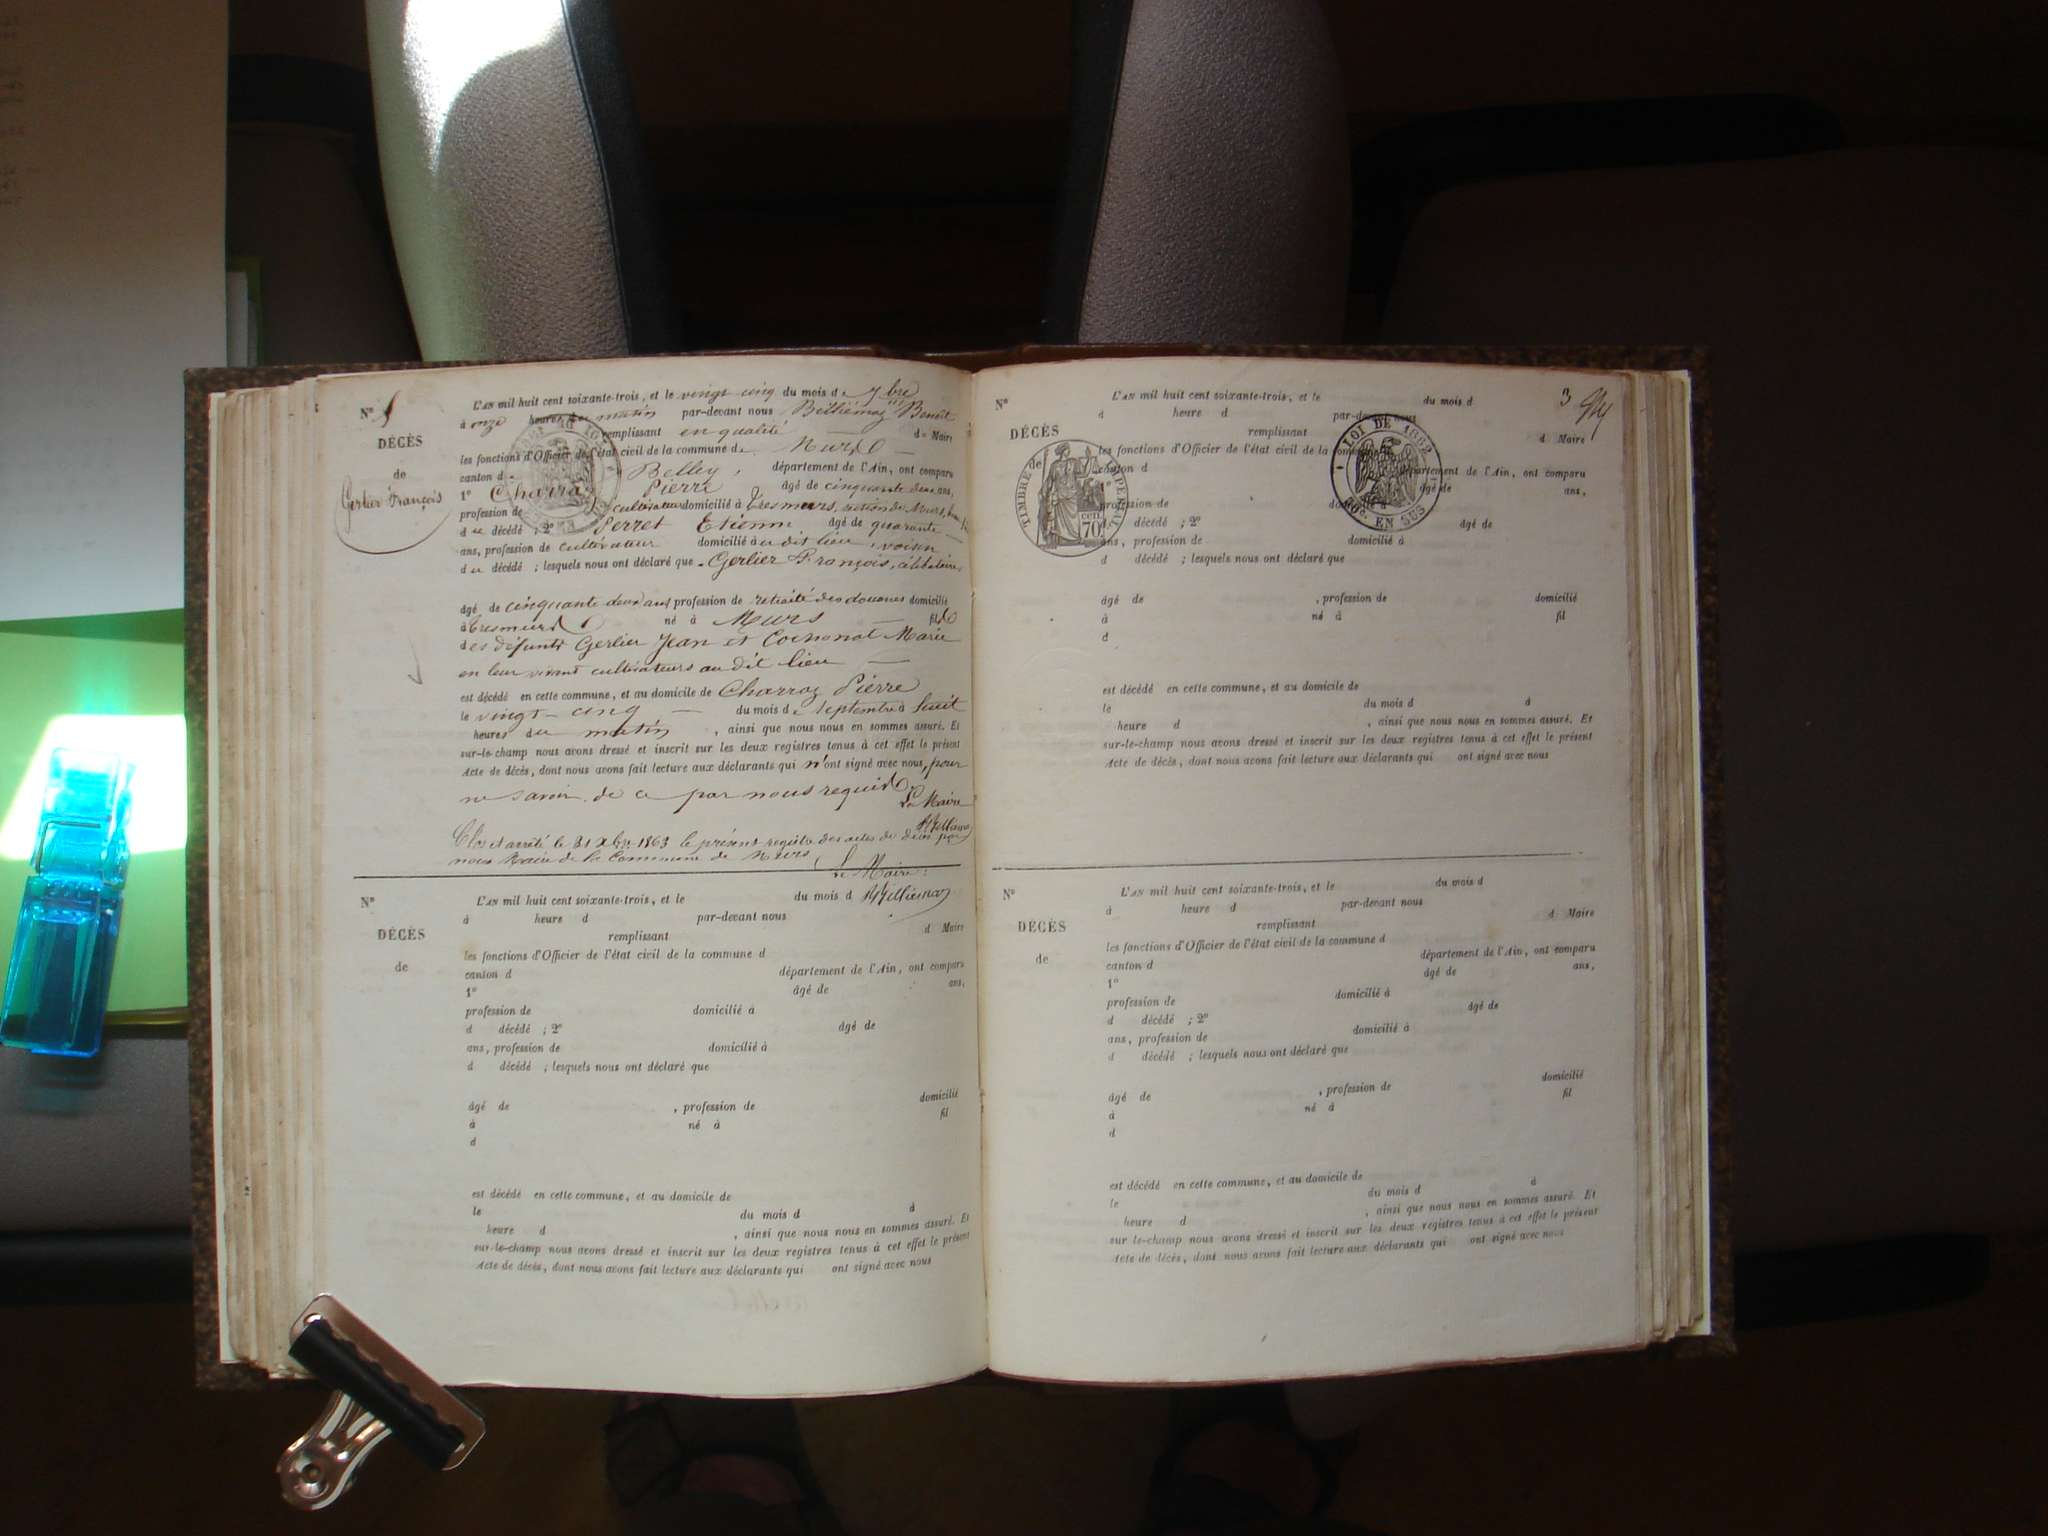 Nº 9
DÉCÈS
de
Gerlier François
L'AN mil huit cent soixante-trois, et le vingt cinq du mois de 7bre
à onze heures du matin par-devant nous Benoit
remplissant en qualité de Maire
les fonctions d'Officier de l'état civil de la commune de Murs
canton de Belley, département de l'Ain, ont comparu
1º Pierre âgé de cinquante deux ans,
profession de cultivateur domicilié à Tresmurs, section de Murs,
du décédé ; 2º Perret Etienne âgé de quarante
ans, profession de cultivateur domicilié à u dit lieu, voisin
du décédé ; lesquels nous ont déclaré que Gerlier François, célibataire,
âgé de cinquante deux ans profession de retraité des douanes domicilié
à Tresmurs né à Murs fils
des défunts Gerlier Jean et Marie
en leur vivant cultivateurs au dit lieu
est décédé en cette commune, et au domicile de Charroz Pierre
le vingt-cinq du mois de septembre à huit
heures du matin, ainsi que nous nous en sommes assuré. Et
sur-le-champ nous avons dressé et inscrit sur les deux registres tenus à cet effet le présent
Acte de décès, dont nous avons fait lecture aux déclarants qui n'ont signé avec nous, pour
ne savoir de ce par nous requis
Le Maire
Clos et arrêté le 31 Xbre 1863 le présent registre des actes de décès par
nous Maire de la Commune de Murs
Le Maire:
Nº
DÉCÈS
de
L'AN mil huit cent soixante-trois, et le du mois d
à heure d par-devant nous
remplissant d Maire
les fonctions d'Officier de l'état civil de la commune d
canton d département de l'Ain, ont comparu
1º âgé de ans,
profession de domicilié à
d décédé ; 2º âgé de
ans, profession de domicilié à
d décédé ; lesquels nous ont déclaré que
âgé de , profession de domicilié
à né à fil
d
est décédé en cette commune, et au domicile de
le du mois d d
heure d , ainsi que nous nous en sommes assuré. Et
sur-le-champ nous avons dressé et inscrit sur les deux registres tenus à cet effet le présent
Acte de décès, dont nous avons fait lecture aux déclarants qui ont signé avec nous
3
Nº
DÉCÈS
de
TIMBRE IMPÉRIAL
70 cen.
LOI DE 1862
EN SUS
L'AN mil huit cent soixante-trois, et le du mois d
d heure d par-devant nous
remplissant d Maire
les fonctions d'Officier de l'état civil de la commune
canton d département de l'Ain, ont comparu
1º âgé de ans,
profession de domicilié à
d décédé ; 2º âgé de
ans, profession de domicilié à
d décédé ; lesquels nous ont déclaré que
âgé de , profession de domicilié
à né à fil
d
est décédé en cette commune, et au domicile de
le du mois d d
heure d , ainsi que nous nous en sommes assuré. Et
sur-le-champ nous avons dressé et inscrit sur les deux registres tenus à cet effet le présent
Acte de décès, dont nous avons fait lecture aux déclarants qui ont signé avec nous
Nº
DÉCÈS
de
L'AN mil huit cent soixante-trois, et le du mois d
à heure d par-devant nous
remplissant d Maire
les fonctions d'Officier de l'état civil de la commune d
canton d département de l'Ain, ont comparu
1º âgé de ans,
profession de domicilié à
d décédé ; 2º âgé de
ans, profession de domicilié à
d décédé ; lesquels nous ont déclaré que
âgé de , profession de domicilié
à né à fil
d
est décédé en cette commune, et au domicile de
le du mois d d
heure d , ainsi que nous nous en sommes assuré. Et
sur le-champ nous avons dressé et inscrit sur les deux registres tenus à cet effet le présent
Acte de décès, dont nous avons fait lecture aux déclarants qui ont signé avec nous